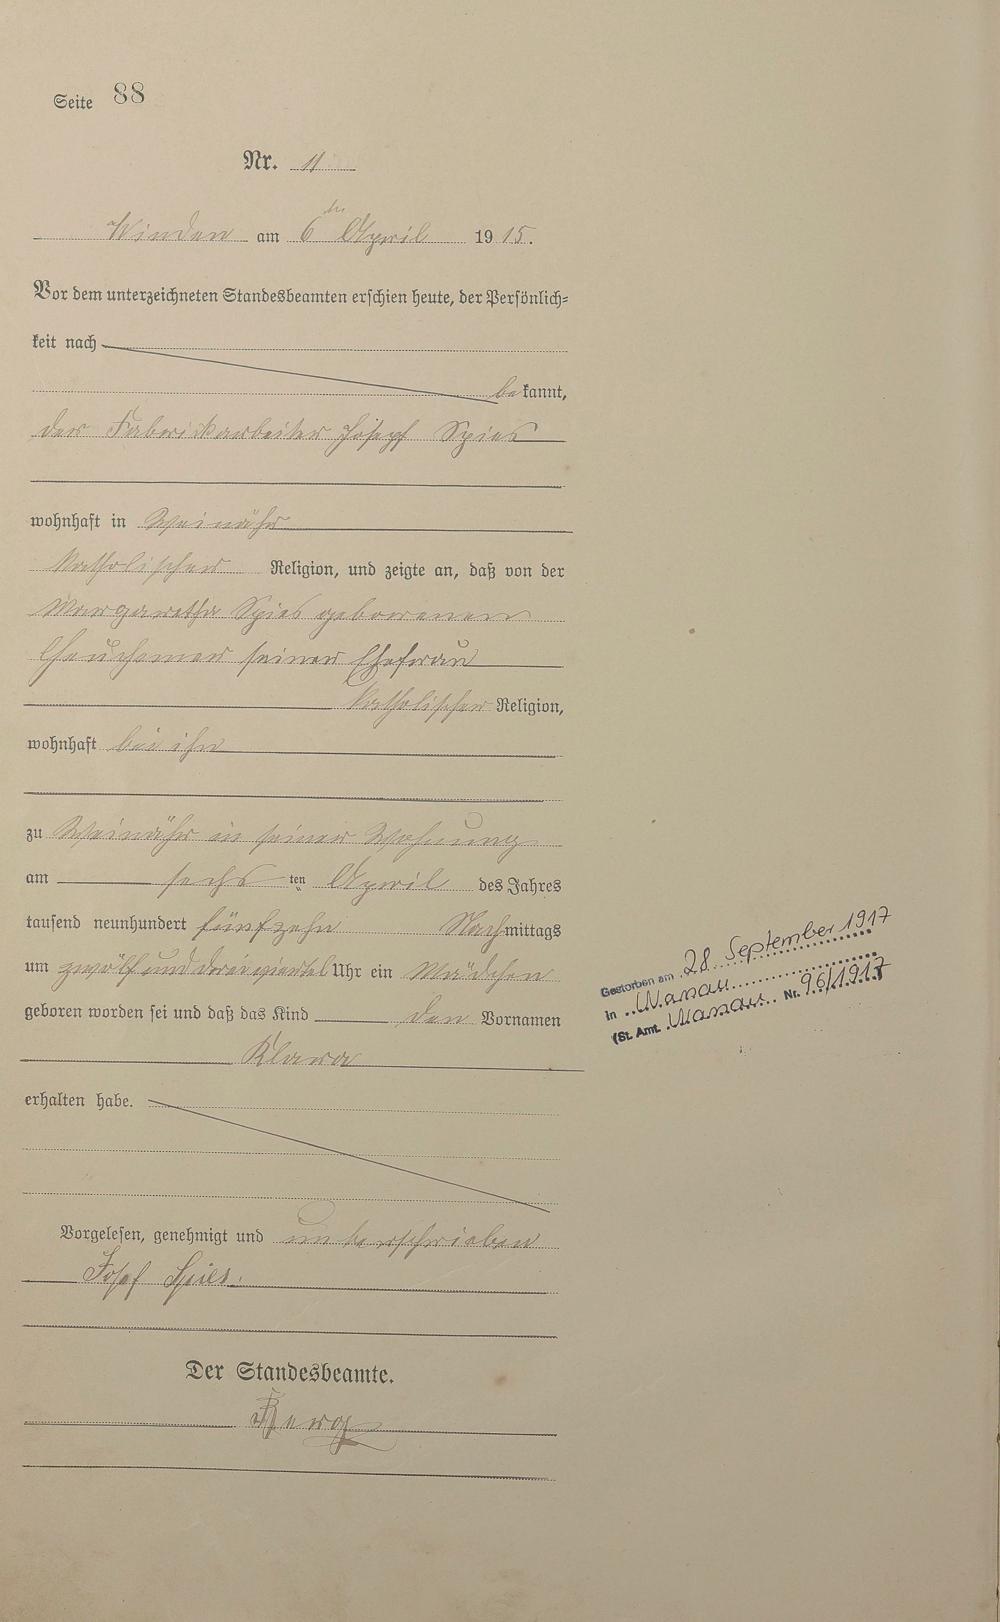 Seite 88
Nr. 11
Winden am 6ten April 1915.
Vor dem unterzeichneten Standesbeamten erschien heute, der Persönlich-
keit nach
bekannt,
der Fabrikarbeiter Josepf Spies
wohnhaft in Weinähr
katholischer Religion, und zeigte an, daß von der
Margaretha Spies geborenen
seiner Ehefrau
katholischer Religion,
wohnhaft bei ihm
zu Weinähr in seiner Wohnung
am sechsten April des Jahres
tausend neunhundert fünfzehn Nachmittags
um zwölf und dreiviertel Uhr ein Mädchen
geboren worden sei und daß das Kind den Vornamen
Klara
erhalten habe.
Vorgelesen, genehmigt und unterschrieben
Josef Spies.
Der Standesbeamte.
Gestorben am 28. September 1917
in Nassau
(St. Amt. Nassau Nr. 96/1917